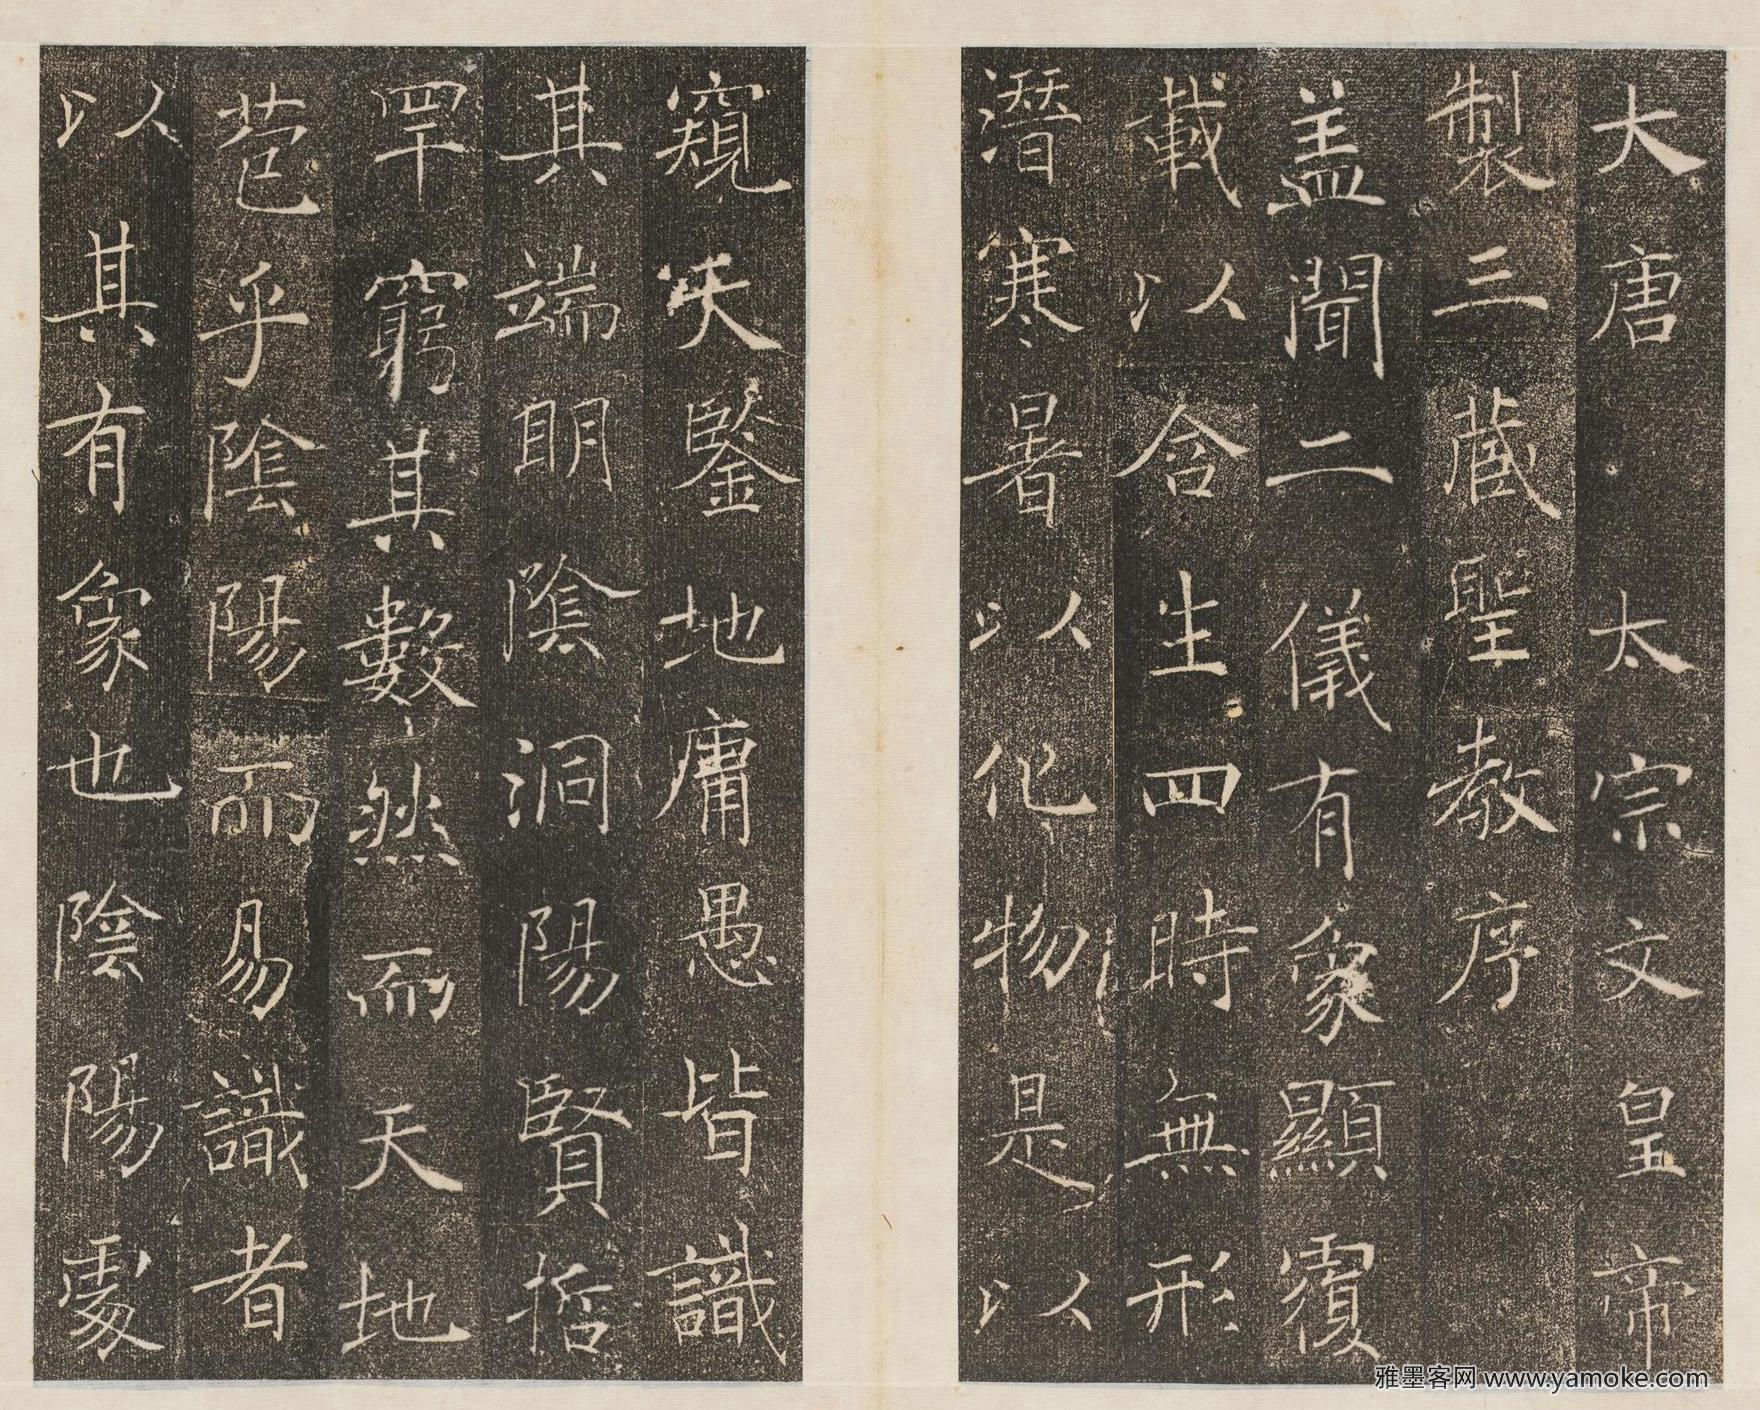 大唐太宗文皇帝
製三藏聖教序
盖聞二儀有象顯覆
載以含生四時無形
潛寒暑以化物是以
窺天鑒地庸愚皆識
其端明陰洞陽賢哲
罕窮其數然而天地
苞乎陰陽而易識者
以其有象也陰陽處
雅墨客网 www.yamoke.com